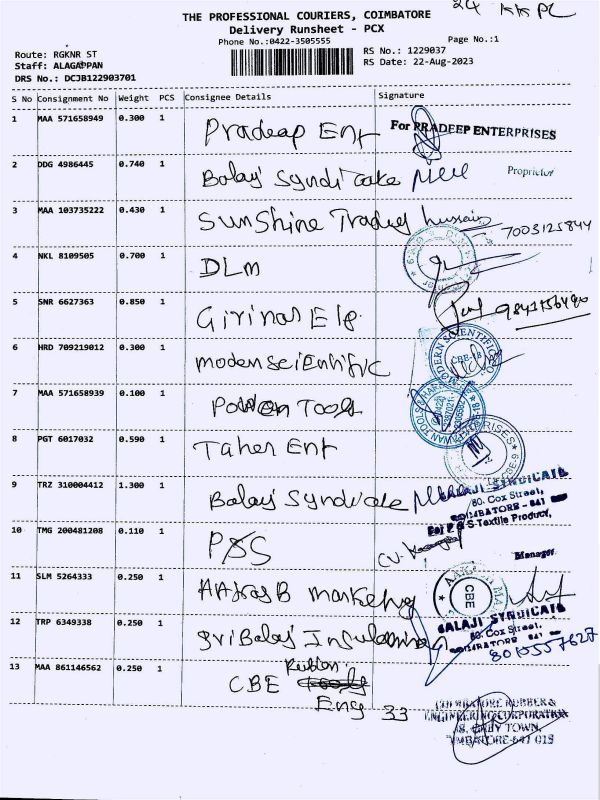 24 KKPL
THE PROFESSIONAL COURIERS, COIMBATORE
Delivery Runsheet - PCX
Phone No.:0422-3505555
Page No.:1
Route: RGKNR ST
Staff: ALAGAPPAN
DRS No.: DCJB122903701
RS No.: 1229037
RS Date: 22-Aug-2023
S No Consignment No Weight PCS Consignee Details Signature
1 MAA 571658949 0.300 1 Pradeap Ent For PRADEEP ENTERPRISES
Proprietor
2 DDG 4986445 0.740 1 Balaji Syndicate
3 MAA 103735222 0.430 1 Sunshine Trading Hussain
7003125844
4 NKL 8109505 0.700 1 DLM
5 SNR 6627363 0.850 1 Girinas Elg. 9841156490
6 HRD 709219012 0.300 1 moden scientific MODERN SCIENTIFIC CO. CBE-18
7 MAA 571658939 0.100 1 Power Tools
8 PGT 6017032 0.590 1 Taher Ent
9 TRZ 310004412 1.300 1 Balaji Syndicate BALAJI SYNDICATE
80, Cox Street,
COIMBATORE - 641
For P S S Textile Product,
10 TMG 200481208 0.110 1 PSS
Manager
11 SLM 5264333 0.250 1 AAkash Marketing CBE
BALAJI SYNDICATE
80, Cox Street,
COIMBATORE 641
12 TRP 6349338 0.250 1 Sri Balaji 8015557627
13 MAA 861146562 0.250 1 CBE Rubber
Eng 33
COIMBATORE RUBBER &
ENGINEERING CORPORATION
TOWN,
COIMBATORE-641 018